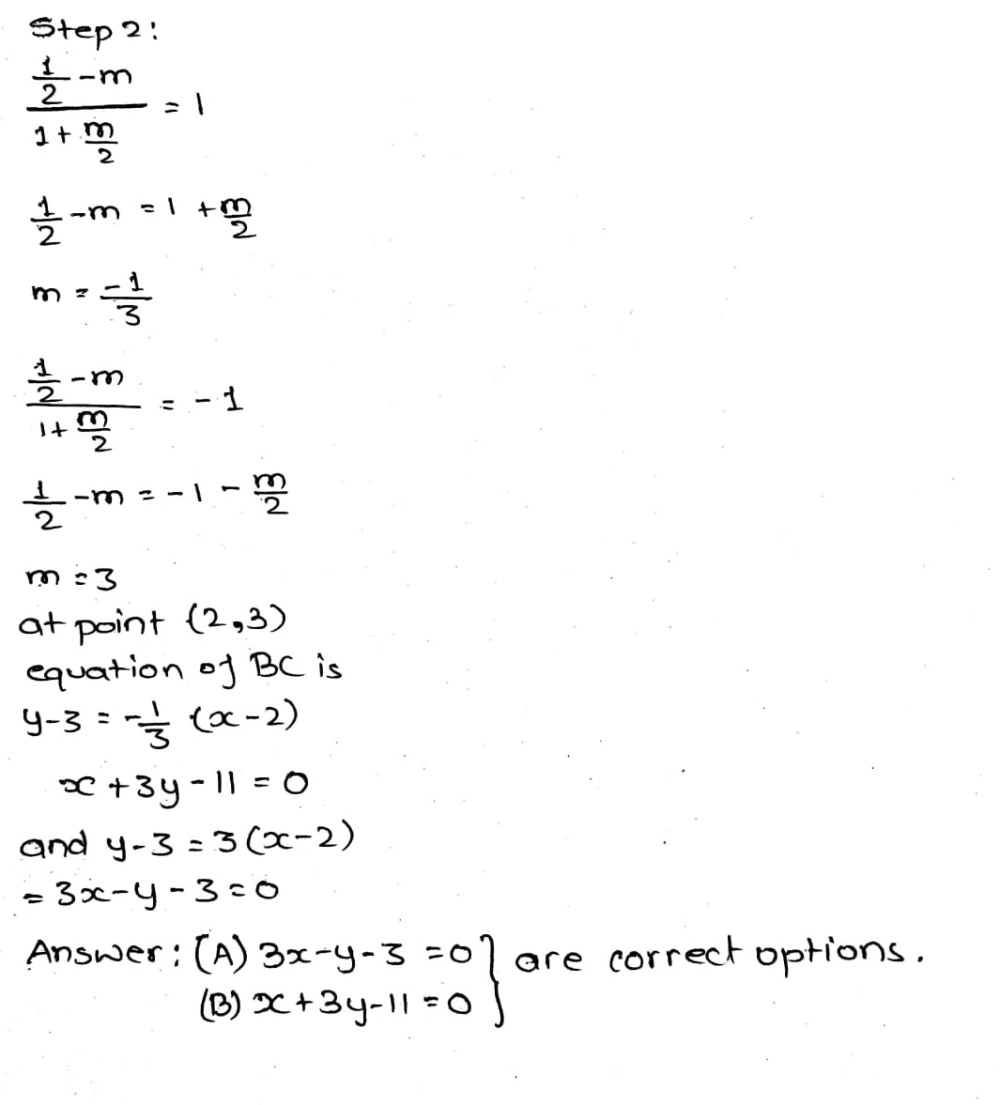 Step 2:
(1/2 - m)/(1 + m/2) = 1
1/2 - m = 1 + m/2
m = -1/3
(1/2 - m)/(1 + m/2) = -1
1/2 - m = -1 - m/2
m = 3
at point (2,3)
equation of BC is
y-3 = -1/3 (x-2)
x + 3y - 11 = 0
and y-3 = 3(x-2)
= 3x-y-3=0
Answer: (A) 3x-y-3 = 0 } are correct options.
(B) x+3y-11 = 0